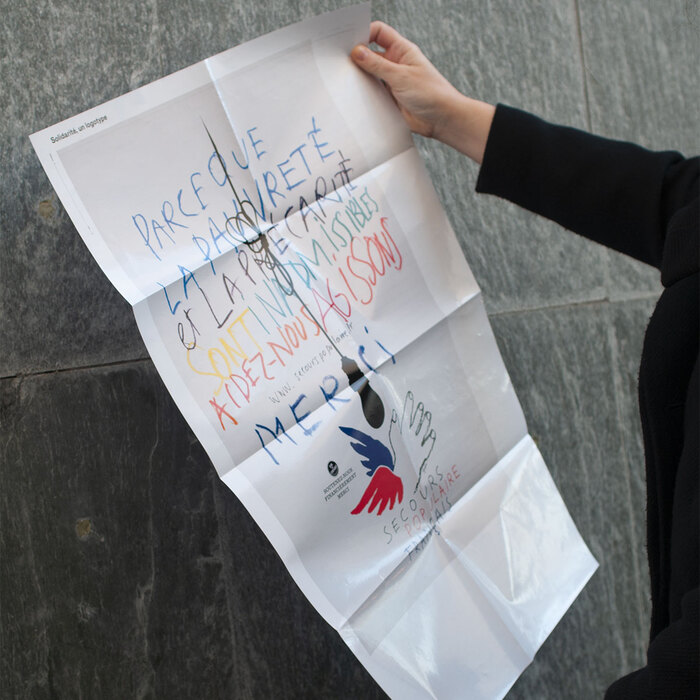 Solidarité, un logotype
PARCE QUE
LA PAUVRETÉ
et LA PRÉCARITÉ
SONT INADMISSIBLES
AIDEZ-NOUS AGISSONS
www.secourspopulaire.fr
MERCI
SOUTENEZ-NOUS
FINANCIÈREMENT
MERCI
SECOURS
POPULAIRE
FRANÇAIS